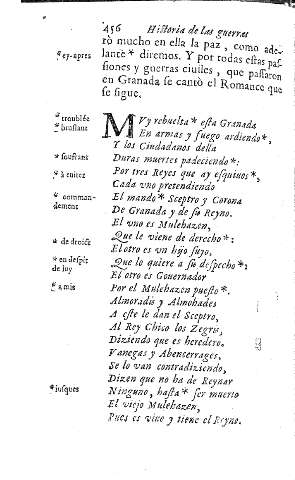 456 Historia de las guerras
rò mucho en ella la paz, como ade-
* cy-apres
lante * diremos. Y por todas estas pas-
siones y guerras ciuiles, que passaron
en Granada se cantò el Romance que
se sigue.
* troublée
MVy rebuelta * esta Granada
* bruslant
En armas y fuego ardiendo *,
Y los Ciudadanos della
* souffrans
Duras muertes padeciendo *:
* à euitez
Por tres Reyes que ay esquinos *,
Cada vno pretendiendo
* commandement
El mando * Sceptro y Corona
De Granada y de su Reyno.
El vno es Mulehazen,
* de droict
Que le viene de derecho *:
El otro es vn hijo suyo,
* en despit de loy
Que lo quiere a su despecho *:
El otro es Gouernador
* mis
Por el Mulehazen puesto *.
Almoradis y Almohades
A este le dan el Sceptro,
Al Rey Chico los Zegris,
Diziendo que es heredero.
Vanegas y Abencerrages,
Se lo van contradiziendo,
Dizen que no ha de Reynar
* iusques
Ninguno, hasta * ser muerto
El viejo Mulehazen,
Pues es viuo y tiene el Reyno.